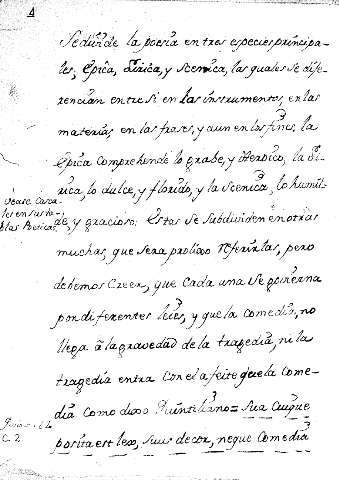 4
Se divide la poesia en tres especies principa-
les, Epica, Lirica, y Scenica, las quales se dife-
rencian entre si en las instrumentos, en las
materias, en las frases, y aun en los fines, la
Epica comprehende lo grabe, y Heroico, la Li-
rica, lo dulce, y florido, y la Scenica, lo humil-
de, y gracioso: Estas se subdividen en otras
muchas, que sera prolixo referirlas, pero
debemos Creer, que cada una se govierna
por diferentes leies, y que la comedia, no
llega â la gravedad de la tragedia, ni la
tragedia entra Con el afeite que la Come-
dia Como dixo Quintiliano = Sua Cuique
posita est lex, suus decor, neque Comedia
Vease Casca-
les en sus ta-
blas Poeticas
C. 2.